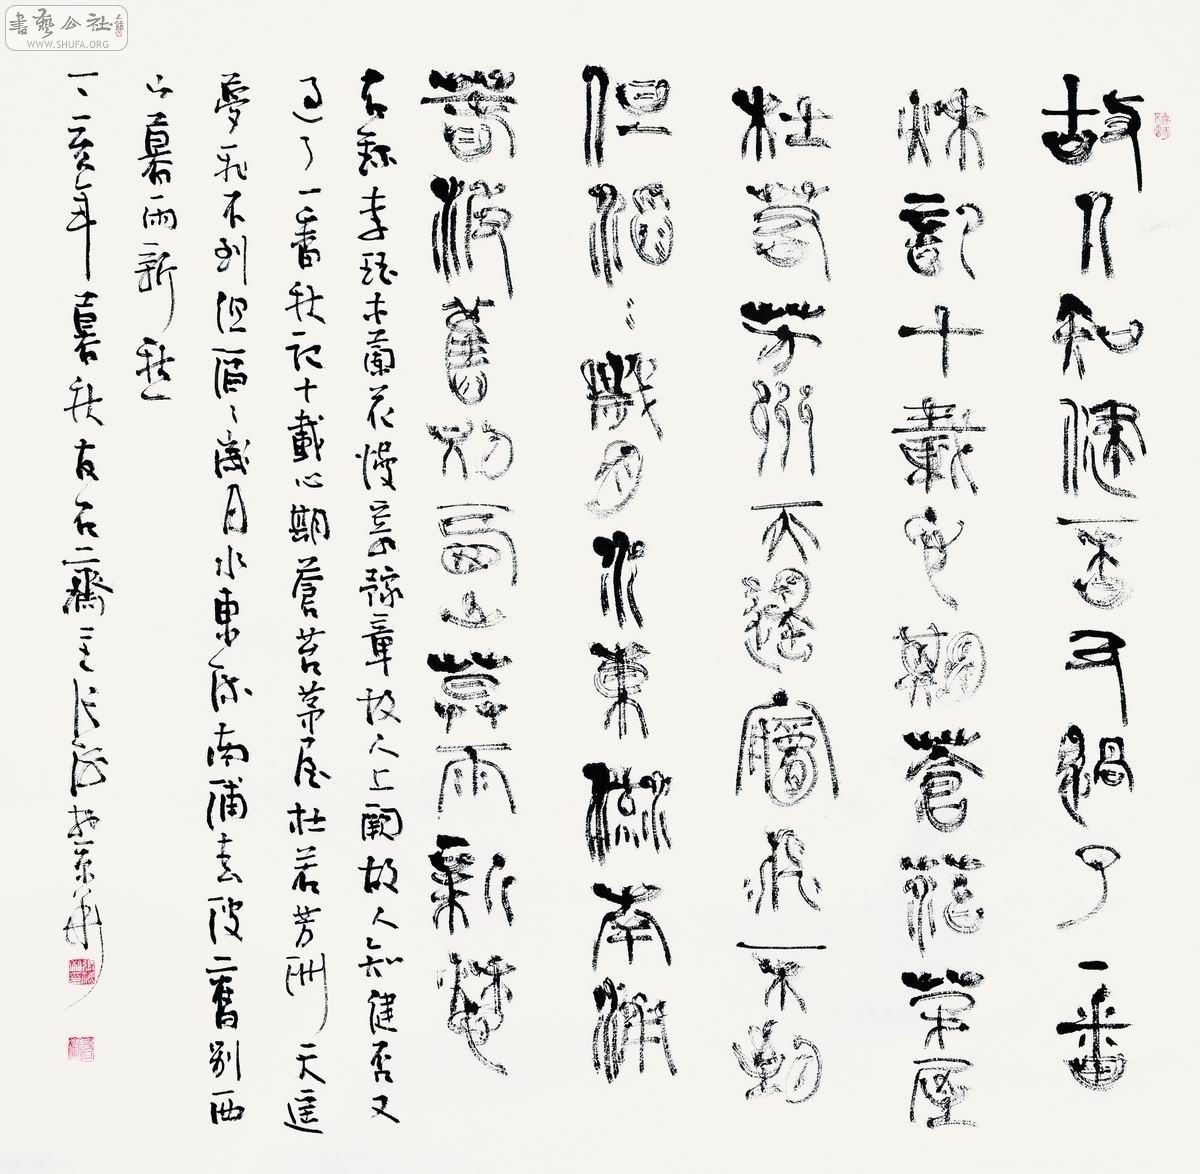 書藝公社
WWW.SHUFA.ORG
故人知健否又過了一番
秋記十載心期蒼苔茅屋
杜若芳洲天遥夢飛不到
但滔滔歲月水東流南浦
春波舊別西山暮雨新愁
右録李珏木蘭花慢寄豫章故人上闋故人知健否又
過了一番秋記十載心期蒼苔茅屋杜若芳洲天遥
夢飛不到但滔滔歲月水東流南浦春波舊別西
山暮雨新愁
丁亥年暮秋友石齋主